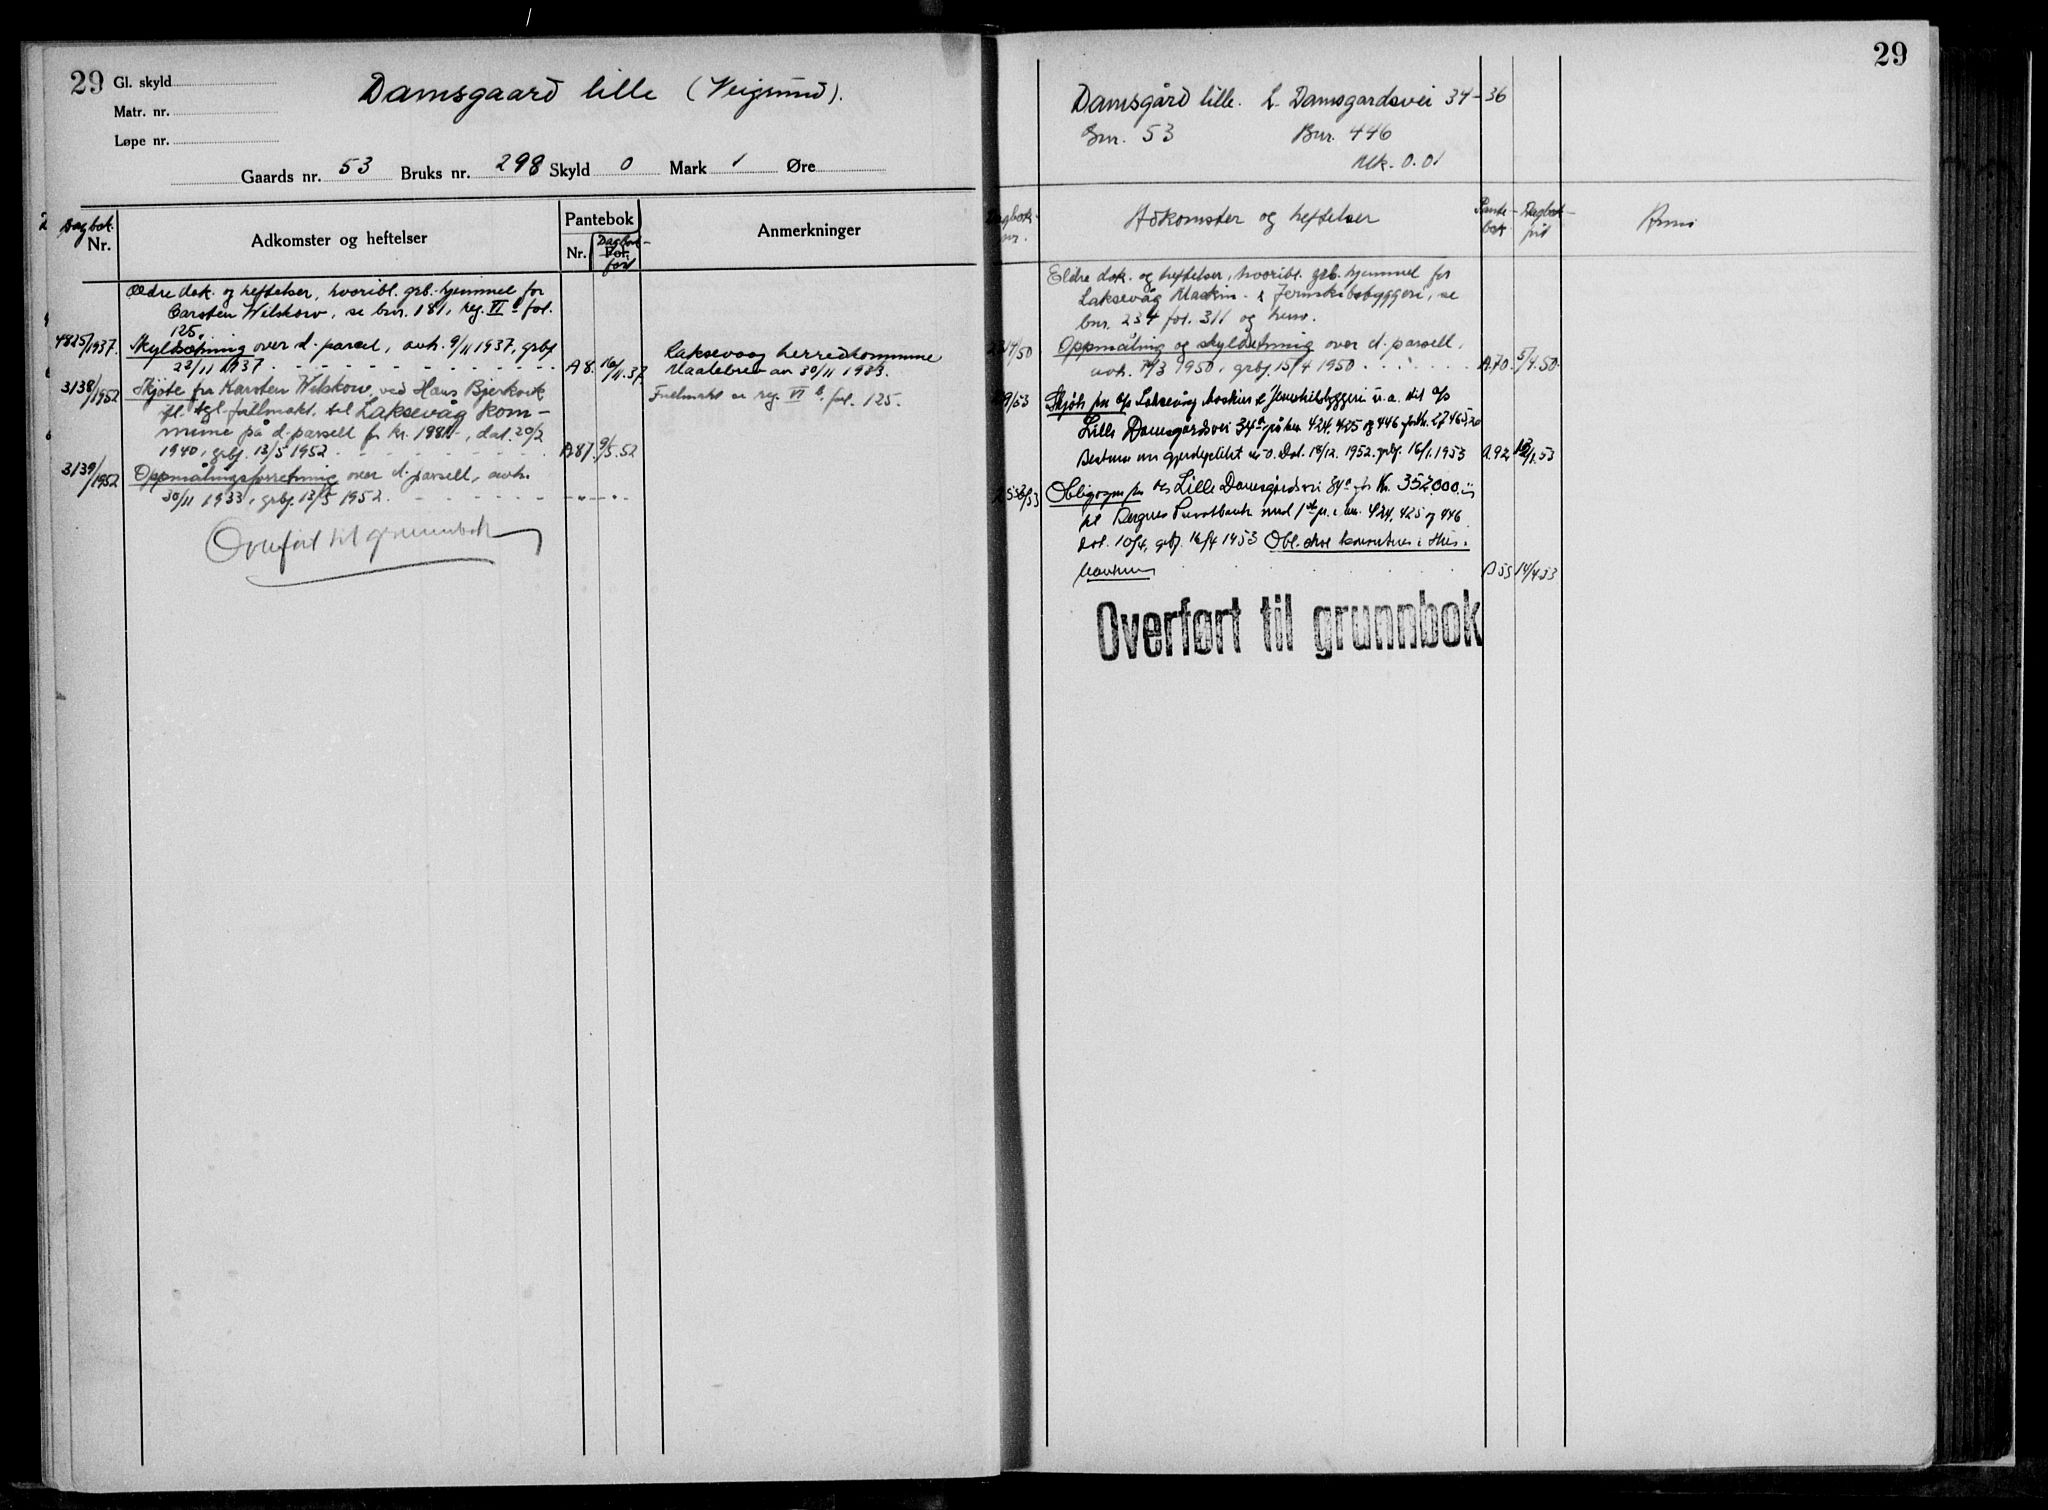 29
Gl. skyld
Matr. nr.
Løpe nr.
Damsgaard lille (Veigrund).
Gaards nr. 53 Bruks nr. 298 Skyld 0 Mark 1 Øre
Dagbok.
Nr.
Adkomster og heftelser
Pantebok
Nr. Fol. Dagbok-ført
Anmerkninger
Ældre dok. og heftelser, hvoribl. grb.-hjemmel for
Carsten Wilskow, se bnr. 181, reg. VI b fol.
125.
4825/1937. Skyldsetning over d. parsel, avh. 9/11 1937, grbf
23/11 1937 A 8. 16/11.37
Laksevaag herredskommune
Maalebrev av 30/11 1933.
3138/1952 Skjøte fra Karsten Wilskow ved Hans Bjerkvik
Fullmakt se reg. VI b. fol. 125.
ifl. tgl. fullmakt til Laksevåg kom-
mune på d. parsell for kr. 1981-, dat. 20/2
1940, grbf. 13/5 1952 A87. 9/5.52
3139/1952 Oppmålingsforretning over d. parsell, avh.
30/11 1933, grbf. 13/5 1952. - " - " -
Overført til grunnbok
29
Damsgård lille. L. Damsgardsvei 34-36
Gnr. 53 Bnr. 446
Mk. 0.01
Dagbok-
nr.
Adkomster og heftelser
Pante-
bok
Dagbok-
ført
Anm.
Eldre dok. og heftelser, hvoribl. grb. hjemmel for
Laksevåg Maskin- & Jernskibsbyggeri, se
bnr. 234 fol. 311 og henv.
/50 Oppmåling og skyldsetning over d. parsell,
avh. /3 1950, grbf. 15/4 1950 A.70. 5/4.50.
/53 Skjøte fra A/S Laksevåg Maskin & Jernskibsbyggeri u.a. til A/S
Lille Damsgårdsvei 34a på bnr. 424, 425 og 446 for kr. 27465,20
Bestem. om gjerdeplikt m.v. Dat. 18/12. 1952. grbf. 16/1. 1953 A.92 /1.53
/53 Obligasjon fra A/S Lille Damsgårdsvei 34a for Kr. 352.000.-
til Bergens Privatbank med 1ste pr. i bnr. 424, 425 og 446
Dat. 10/4, grbf. 16/4 1953 Obl. skal konverteres i Hus-
banken B 55 14/4.53
Overført til grunnbok